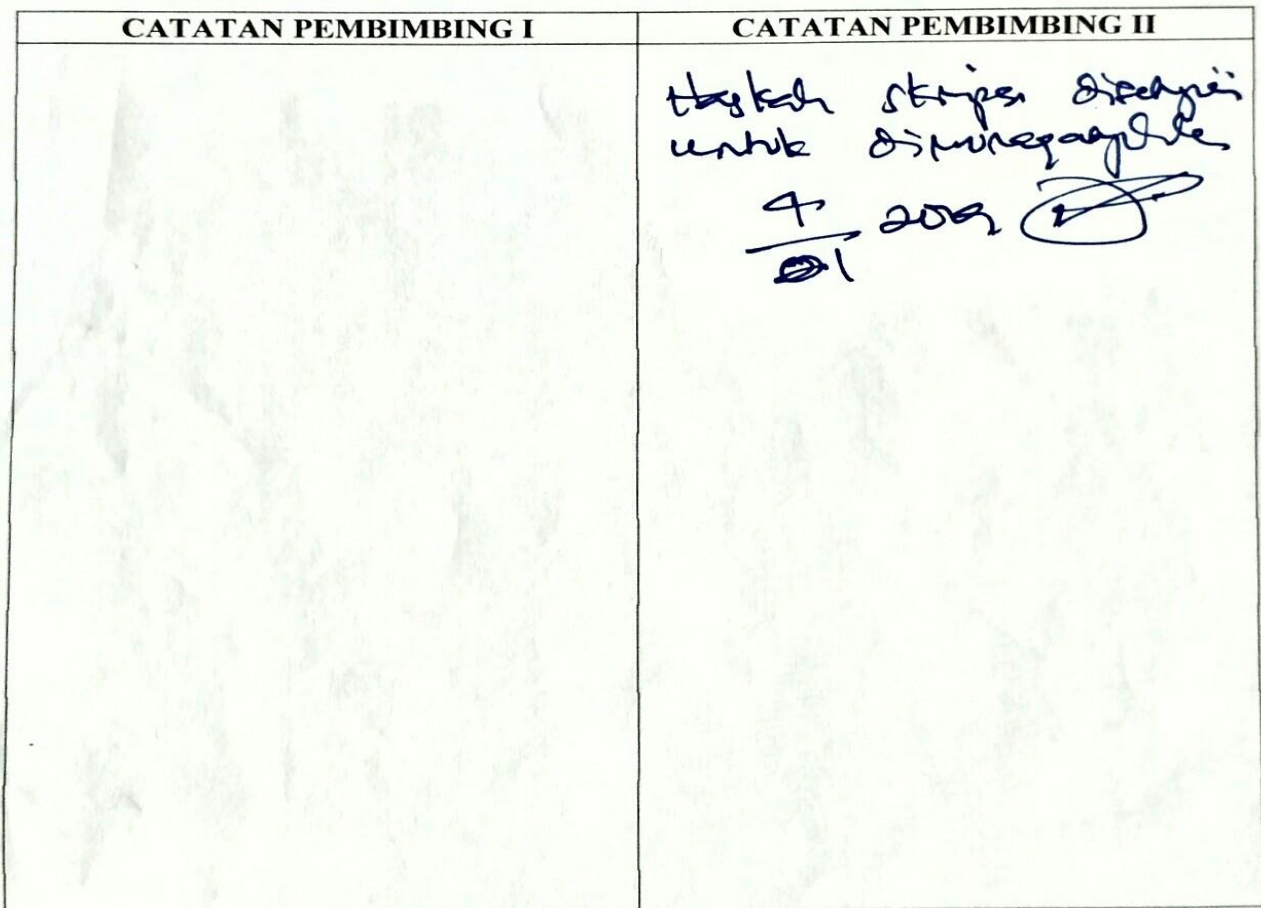 CATATAN PEMBIMBING I
CATATAN PEMBIMBING II
Naskah skripsi disetujui
untuk dimunaqasyahkan
4
01